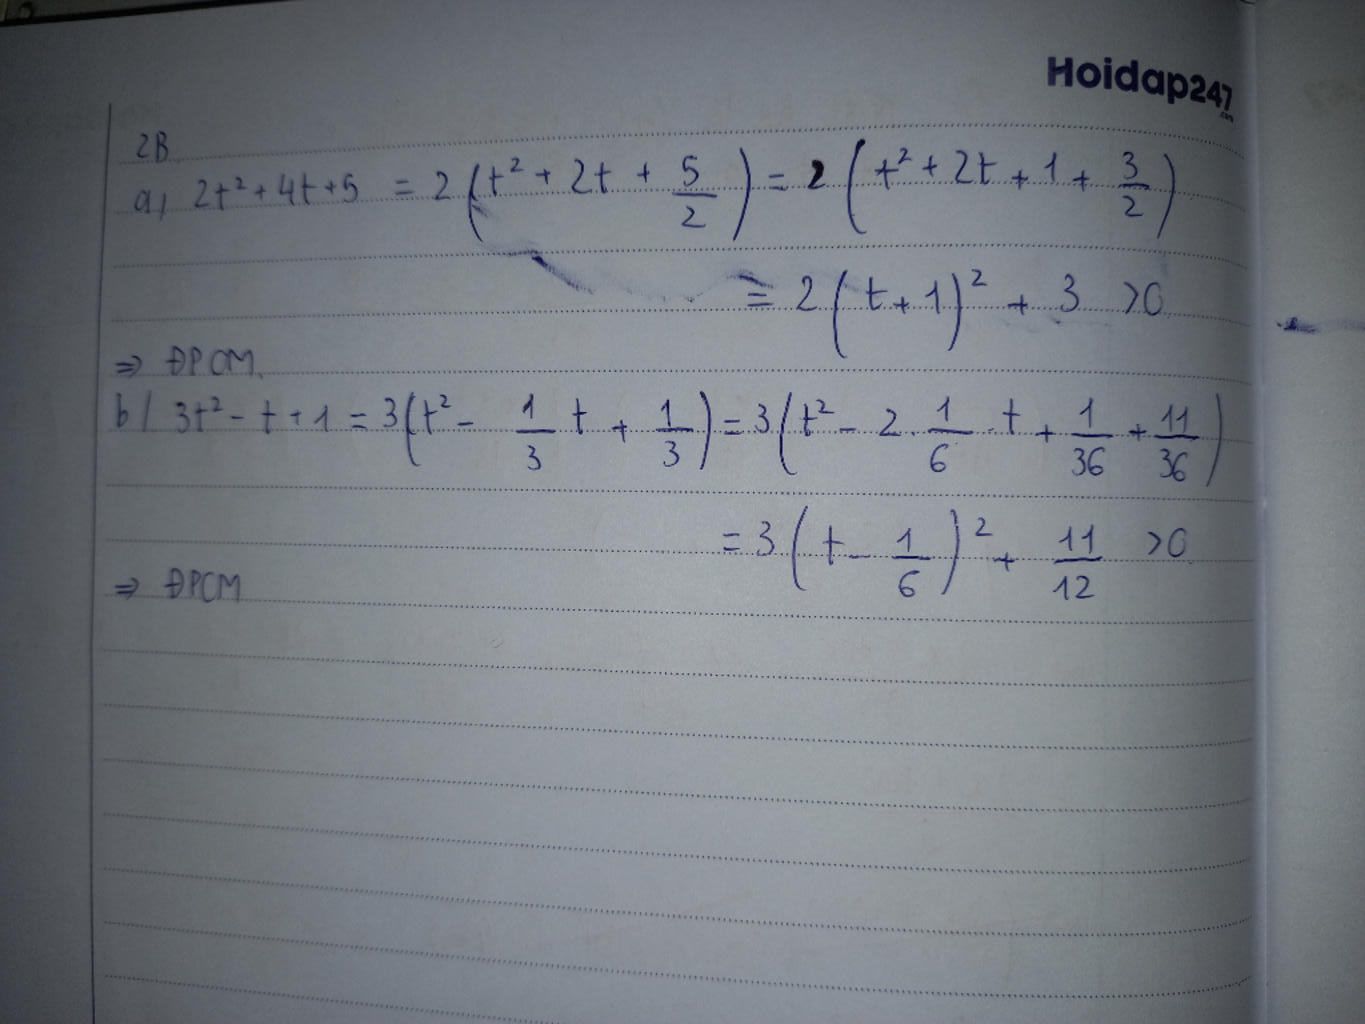 Hoidap247
.com
2B
a, 2t² + 4t + 5 = 2(t² + 2t + 5/2) = 2(t² + 2t + 1 + 3/2)
= 2(t + 1)² + 3 >0
⇒ ĐPCM.
b/ 3t² - t + 1 = 3(t² - 1/3 t + 1/3) = 3(t² - 2. 1/6 .t + 1/36 + 11/36)
= 3(t - 1/6)² + 11/12 >0
⇒ ĐPCM